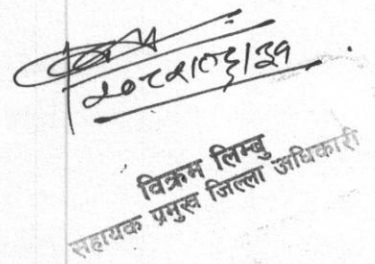 २०८२।०६।३१
विक्रम लिम्बु
सहायक प्रमुख जिल्ला अधिकारी